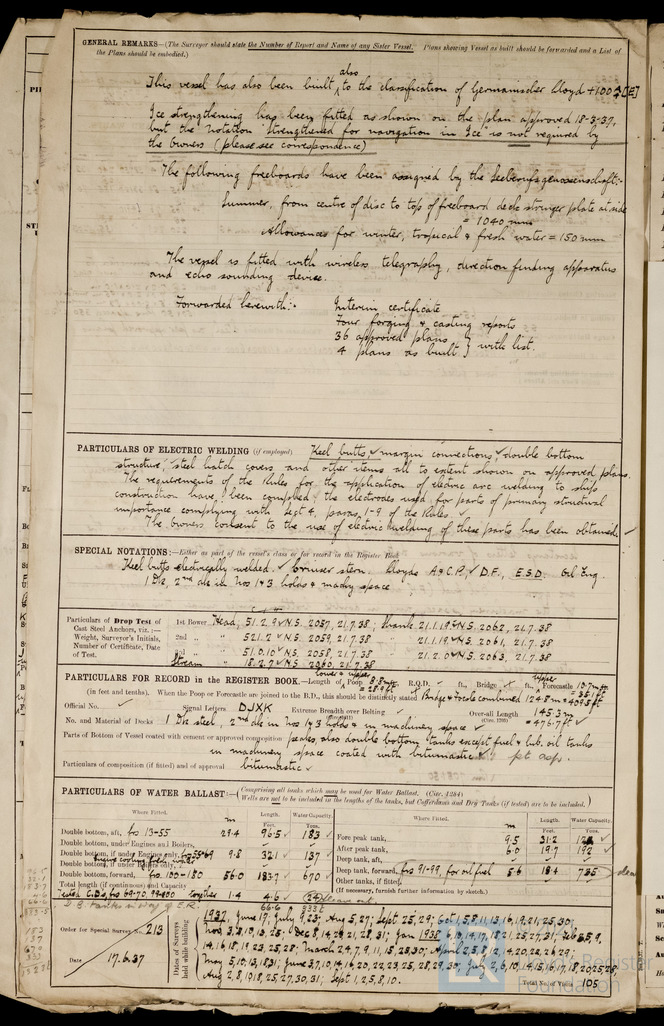 GENERAL REMARKS—(The Surveyor should state the Number of Report and Name of any Sister Vessel. Plans showing Vessel as built should be forwarded and a List of
the Plans should be embodied.)
also
This vessel has also been built to the classification of Germanischer Lloyd +100 A [E]
Ice strengthening has been fitted as shown on the plan approved 18-3-37,
but the notation "Strengthened for navigation in Ice" is not required by
the owners (please see correspondence)
The following freeboards have been assigned by the Seeberufsgenossenschaft:-
Summer, from centre of disc to top of freeboard deck stringer plate at side
= 1040 mm
Allowances for winter, tropical & fresh water = 150 mm
The vessel is fitted with wireless telegraphy, direction finding apparatus
and echo sounding device.
Forwarded herewith:- Interim certificate
Four forging & casting reports
36 approved plans } with list.
4 plans as built }
PARTICULARS OF ELECTRIC WELDING (if employed) Keel butts, margin connections, double bottom
structure, steel hatch covers and other items all to extent shown on approved plans.
The requirements of the Rules for the application of electric arc welding to ship
construction have been complied, the electrodes used for parts of primary structural
importance complying with Sect 4, paras 1-9 of the Rules
The owners consent to the use of electric welding of these parts has been obtained.
SPECIAL NOTATIONS:—Either as part of the vessel's class or for record in the Register Book
Keel butts electrically welded. Cruiser stern. Lloyds A & C.P., D.F., E.S.D. Oil Eng.
1 Dk, 2nd dk in Nos 1 & 3 holds & machy space
Particulars of Drop Test of 1st Bower Head; 51.2.9 N.S. 2057, 21.7.38; Shank. 21.1.19 N.S. 2062, 21.7.38
Cast Steel Anchors, viz.:—
Weight, Surveyor's Initials, 2nd " " 52.1.2 N.S. 2059, 21.7.38 " 21.1.19 N.S. 2061, 21.7.38
Number of Certificate, Date
of Test. 3rd " " 51.0.10 N.S. 2058, 21.7.38 " 21.2.0 N.S. 2063, 21.7.38
Stream 18.2.7 N.S. 2060, 21.7.38
PARTICULARS FOR RECORD in the REGISTER BOOK.—Length of Poop 8.8 mtr ft., R.Q.D. ft., Bridge ft., Forecastle 10.7 mtr
= 28.9 ft = 35.1 ft
(in feet and tenths). When the Poop or Forecastle are joined to the B.D., this should be distinctly stated Bridge & focsle combined 124.8 m = 409.5 ft
Official No. Signal Letters DJXK Extreme Breadth over Belting Over-all Length 145.3 m
= 476.7 ft
No. and Material of Decks 1 Dk steel, 2nd dk in Nos 1 & 3 holds & in machinery space
Parts of Bottom of Vessel coated with cement or approved composition peaks, also double bottom tanks except fuel & lub. oil tanks
in machinery space coated with bitumastic
Particulars of composition (if fitted) and of approval bitumastic
PARTICULARS OF WATER BALLAST:—(Comprising all tanks which may be used for Water Ballast. (Cir. 1284)
Wells are not to be included in the lengths of the tanks, but Cofferdams and Dry Tanks (if tested) are to be included.)
Where Fitted. m Length. Water Capacity. Where Fitted. m Length. Water Capacity.
Feet. Tons. Feet. Tons.
Double bottom, aft, frs 13-55 29.4 96.5 183 Fore peak tank, 9.5 31.2
Double bottom, under Engines and Boilers, After peak tank, 6.0 19.7
Double bottom, if under Engines only, 9.8 32.1 137 Deep tank, aft,
Double bottom, if under Boilers only,
Double bottom, forward, frs. 100-180 56.0 183.7 670 Deep tank, forward, frs 91-99, for oil fuel 5.6 18.4 735
Total length (if continuous) and Capacity Other tanks, if fitted,
together 1.4 4.6 (24) (If necessary, furnish further information by sketch.)
Order for Special Survey No. 213
Date 17.6.37
Dates of Surveys held while building
1937, June 17; July 9,23; Aug 5,27; Sept 25,29; Oct 1,5,8,11,13,16,19,21,25,30;
Aug 2,8,9,18,25,27,30,31; Sept 1,2,5,8,10.
Total No. of Visits 105
Lloyd's Register
Foundation